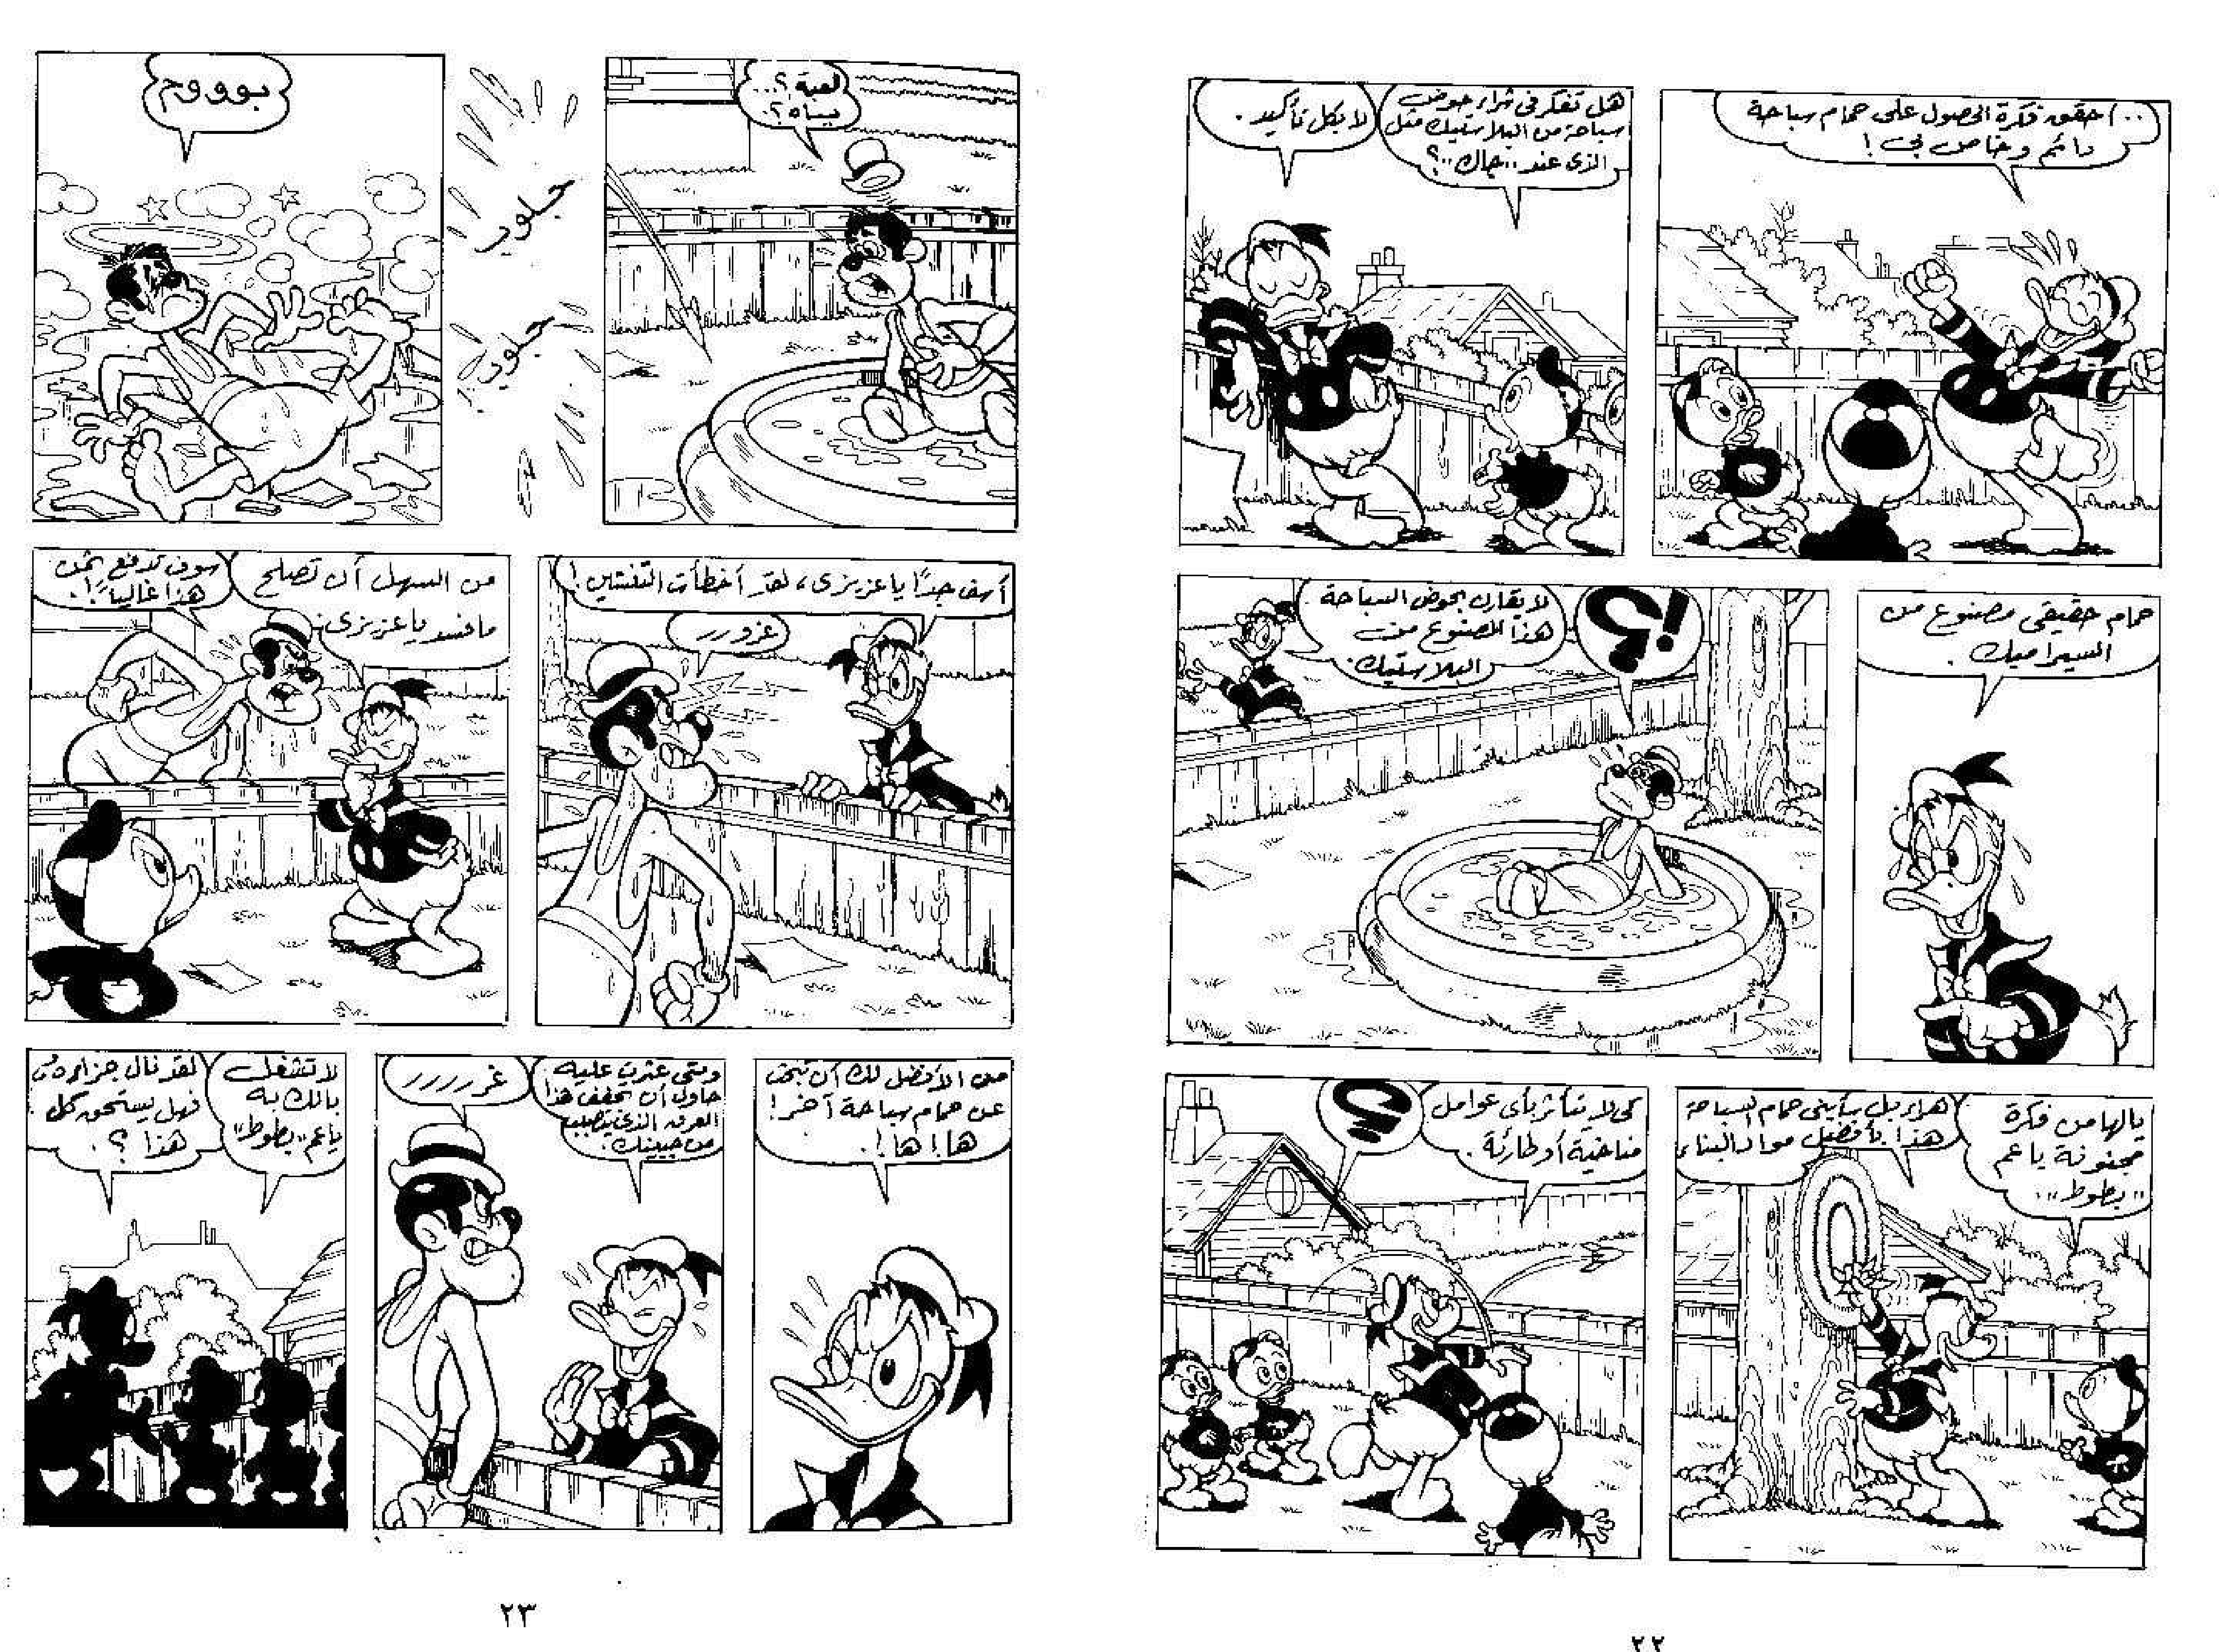 .. أحقق فكرة الحصول على حمام سباحة
دائم وخاص بى !
هل تفكر فى شراء حوض
سباحة من البلاستيك مثل
الذى عند .. جاك ..؟
لا بكل تأكيد .
حمام حقيقى مصنوع من
السيراميك .
؟!
لا يقارن بحوض السباحة
هذا المصنوع من
البلاستيك .
يالها من فكرة
مجنونة يا عم
" بطوط " .
هذا بأفضل مواد البناء
كى لا يتأثر بأى عوامل
مناخية أو طارئة .
؟
٢٢
لعبة ؟...
مياه ؟.
جلوب
جلوب
بوووم
آسف جدًا يا عزيزى ، لقد أخطأت التنشين !
غزوررر
من السهل أن تصلح
ما فسد يا عزيزى .
سوف تدفع ثمن
هذا غاليًا !.
من الأفضل لك أن تبحث
عن حمام سباحة آخر !
ها ! ها !.
ومتى عثرت عليه
حاول أن تجفف هذا
العرق الذى يتصبب
من جبينك .
غررررر
لا تشغل
بالك به
يا عم " بطوط "
لقد نال جزاءه
فهل يستحق كل
هذا ؟.
٢٣